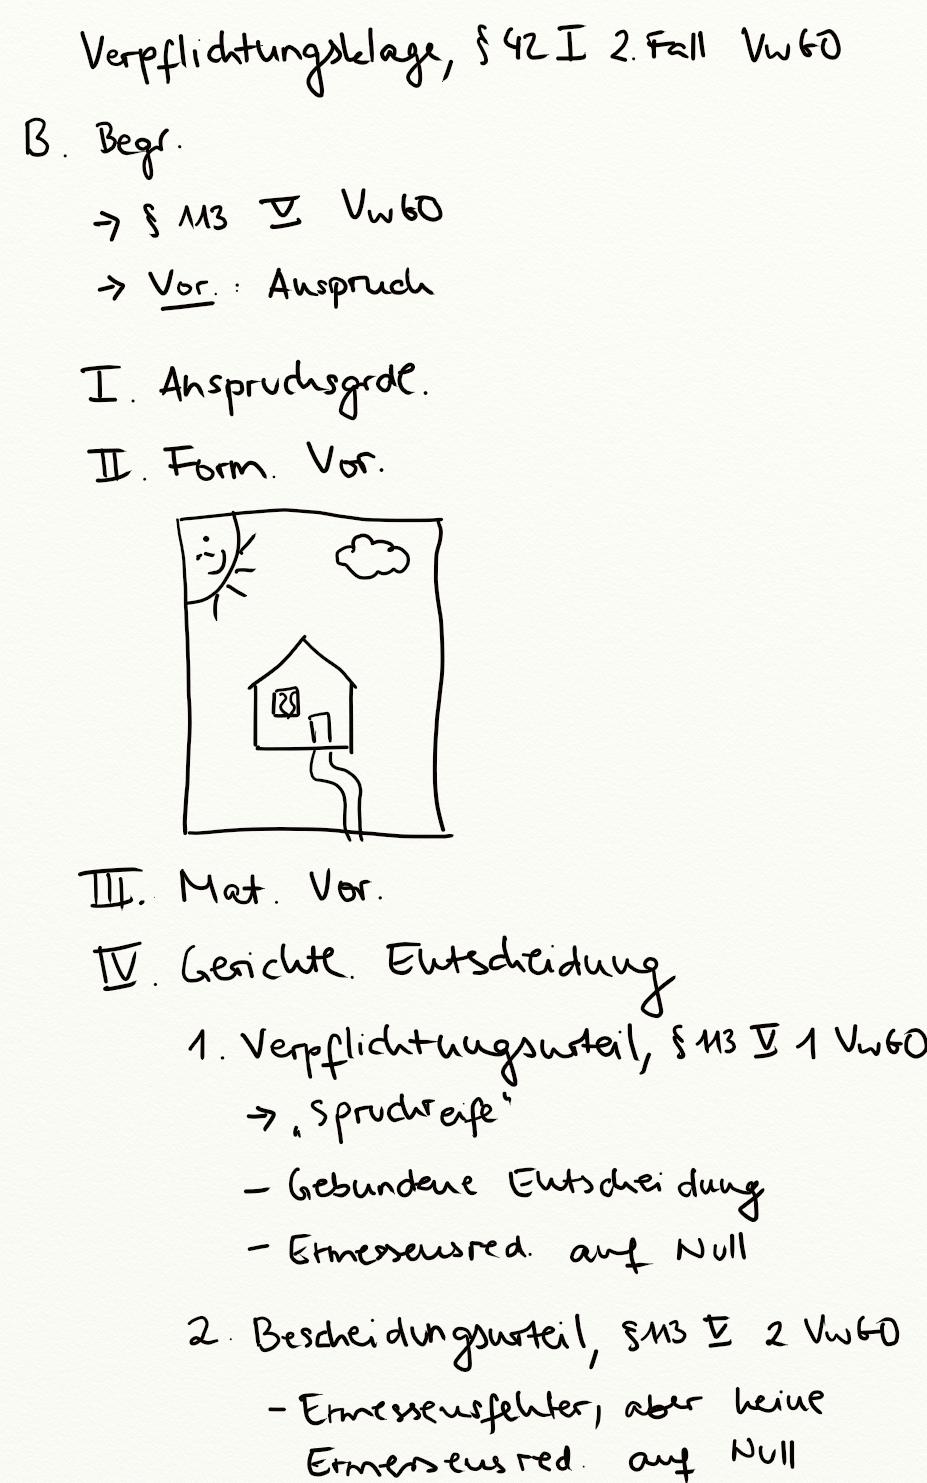 Verpflichtungsklage, § 42 I 2. Fall VwGO
B. Begr.
→ § 113 V VwGO
→ Vor. : Anspruch
I. Anspruchsgrdl.
II. Form. Vor.
III. Mat. Vor.
IV. Gerichtl. Entscheidung
1. Verpflichtungsurteil, § 113 V 1 VwGO
→ „Spruchreife“
- Gebundene Entscheidung
- Ermessensred. auf Null
2. Bescheidungsurteil, § 113 V 2 VwGO
- Ermessensfehler, aber keine
Ermessensred. auf Null